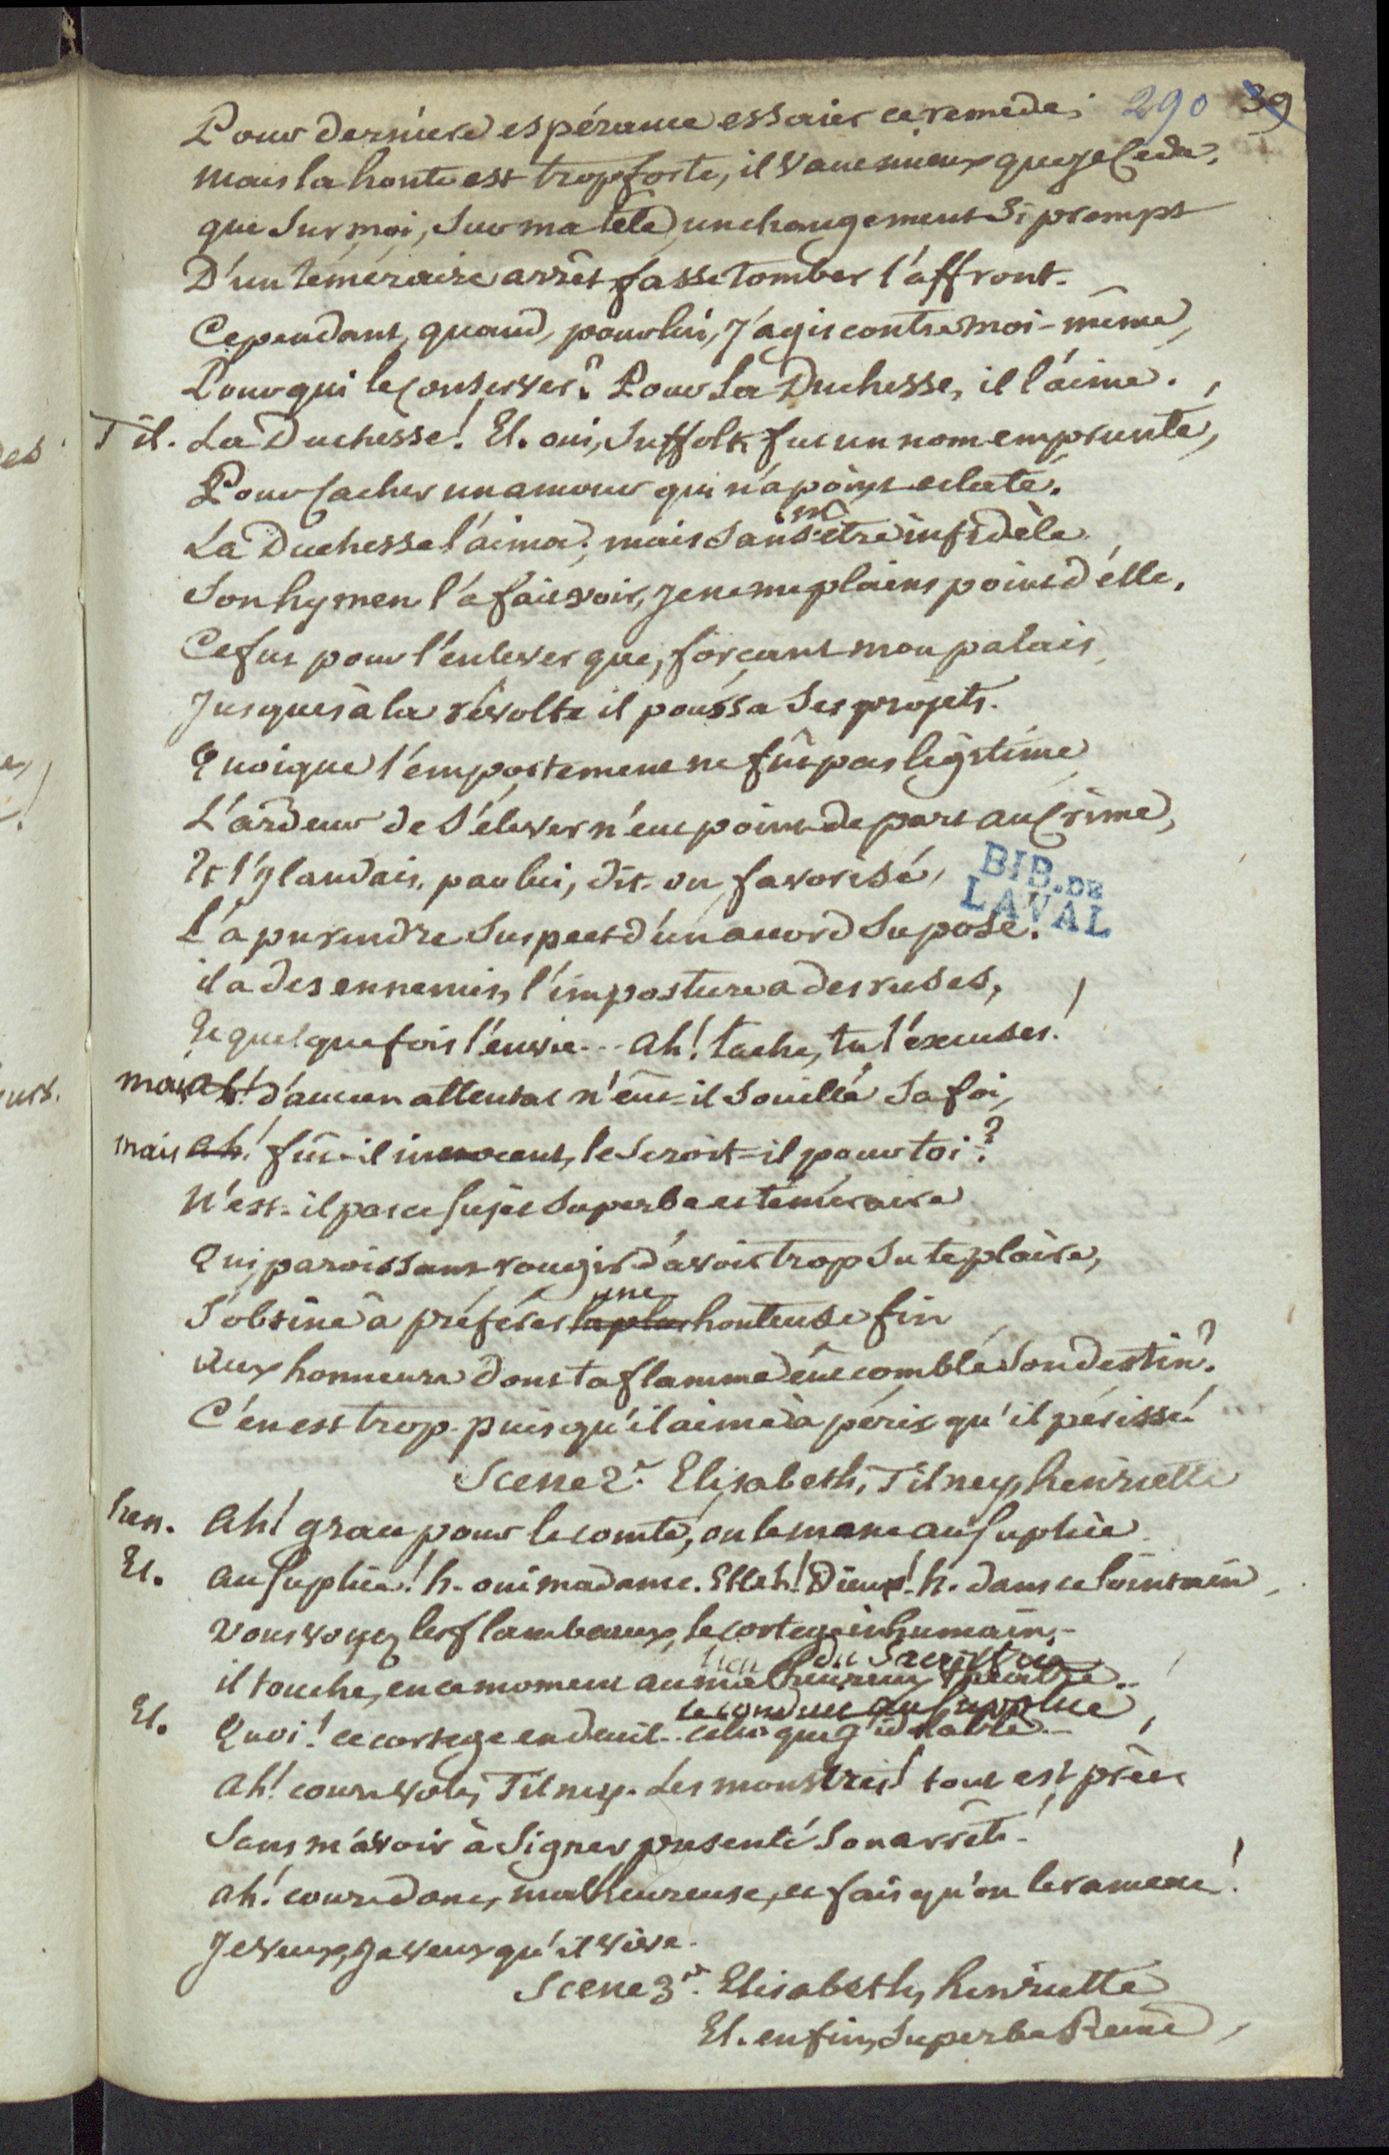 290 39
Pour derniere espérance essaier ce remede;
mais la honte est trop forte, il vaut mieux que je cede,
que sur moi, sur ma tête, un changement si prompt
D'un téméraire arrêt fasse tomber l'affront.
Cependant, quand, pour lui, j'agis contre moi-même,
Pour qui le conserver? Pour la Duchesse, il l'aime.
Til. La Duchesse! El. oui, Suffolk fut un nom emprunté,
Pour cacher un amour qui n'a point eclaté.
La Duchesse l'aima; mais sans m'être infidèle
Son hymen l'a fait voir, je ne me plains point d'elle.
Ce fut pour l'enlever que, forçant mon palais,
Jusques à la révolte il poussa ses projets.
Quoique l'emportement ne fût pas légitime
L'ardeur de s'élever n'eut point de part au crime,
Et l'Irlandais, par lui, dit-on, favorisé,
L'a pu rendre suspect d'un accord suposé.
il a des ennemis, l'imposture a des ruses,
Et quelque fois l'envie... Ah! lache, tu l'excuses!
mais ah! d'aucun attentat n'eut-il souillé sa foi,
mais ah! fût-il innocent, le seroit-il pour toi?
N'est-il pas ce sujet superbe et téméraire
Qui, paroissant rougir d'avoir trop su te plaire,
une
S'obstine à préférer la plus honteuse fin
Aux honneurs dont ta flamme eût comblé son destin?
C'en est trop. puisqu'il aime à périr qu'il périsse.
Scene 2e. Elisabeth, Tilney, henriette
hen. Ah! grace pour le comte, on le mene au suplice
El. au suplice! h. oui madame. El. eh! Dieux! h. dans ce lointain
vous voyez les flambeaux, le cortege inhumain,
lieu du sacrifice
il touche, en ce moment au malheureux théatre..
le conduit au supplice
El. Quoi! ce cortege en deuil.. celui que j'idolatre
Ah! cours, vole, Tilney. Les monstres! tout est prêt
Sans m'avoir à signer presenté son arrêt!
Ah! cours donc, malheureuse, et fais qu'on le ramene!
Je veux, je veux qu'il vive.
Scene 3e. Elisabeth, henriette
El. enfin, superbe Reine,
BIB. DE
LAVAL